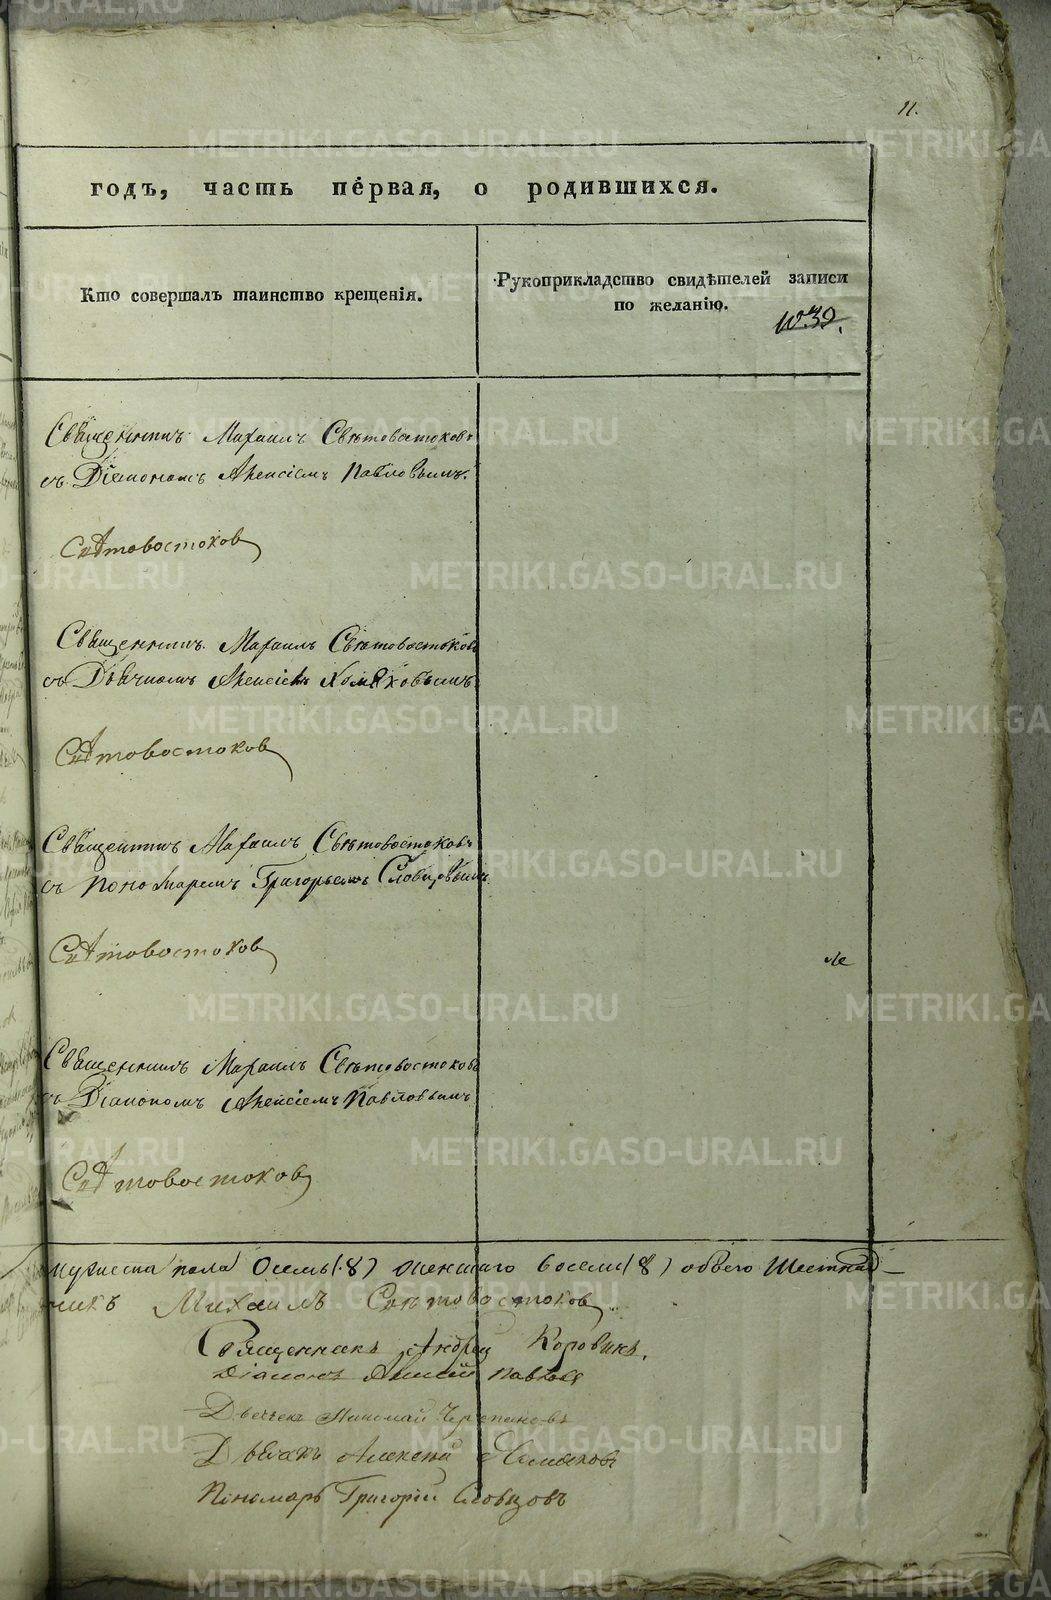 11.
годъ, часть первая, о родившихся.
Кто совершалъ таинство крещенія.
Рукоприкладство свидѣтелей записи
по желанію.
Священникъ Михаилъ Свѣтовостоковъ
съ Діакономъ Алексіемъ Павловымъ.
Свѣтовостоковъ
Священникъ Михаилъ Свѣтовостоковъ
съ Дьячкомъ Алексіемъ Хомяковымъ
Свѣтовостоковъ
Священникъ Михаилъ Свѣтовостоковъ
съ Пономаремъ Григорьемъ Словцовымъ
Свѣтовостоковъ
Священникъ Михаилъ Свѣтовостоковъ
съ Діакономъ Алексіемъ Павловымъ
Свѣтовостоковъ
мужеска пола Осемь (8) женскаго восемь (8) обоего Шестнад-
никъ Михаилъ Свѣтовостоковъ
Священникъ Андрей Коровинъ.
Діаконъ Алексій Павловъ
Дьячекъ Николай Черепановъ
Дьячекъ Алексѣй Хомяковъ
Пономарь Григорій Словцовъ
METRIKI.GASO-URAL.RU